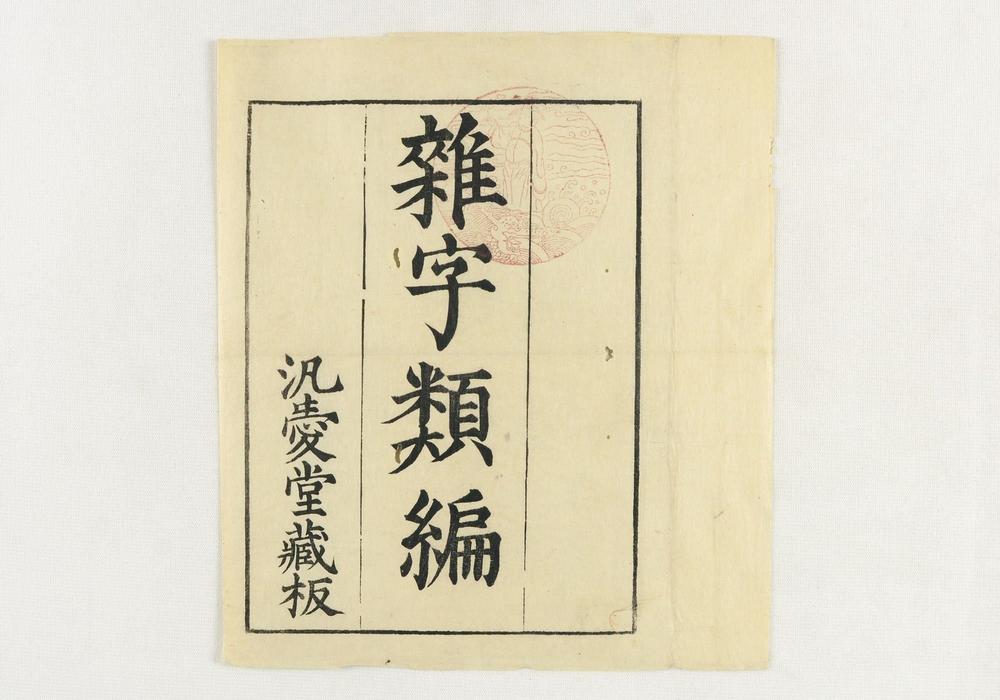 雜字類編
汎愛堂藏板